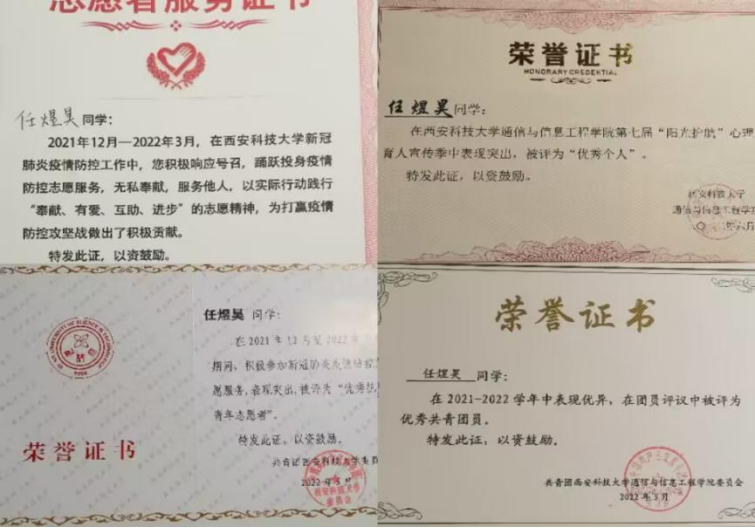 志愿者服务证书
任煜昊同学：
2021年12月—2022年3月，在西安科技大学新冠
肺炎疫情防控工作中，您积极响应号召，踊跃投身疫情
防控志愿服务，无私奉献，服务他人，以实际行动践行
“奉献、有爱、互助、进步”的志愿精神，为打赢疫情
防控攻坚战做出了积极贡献。
特发此证，以资鼓励。
荣誉证书
HONORARY CREDENTIAL
任煜昊同学：
在西安科技大学通信与信息工程学院第七届“阳光护航”心理
育人宣传季中表现突出，被评为“优秀个人”。
特发此证，以资鼓励。
西安科技大学
通信与信息工程学
荣誉证书
任煜昊 同学：
在2021年12月至2022年
期间，积极参加新冠肺炎疫情
愿服务，表现突出，被评为“优秀
青年志愿者”。
特发此证，以资鼓励。
共青团西安科技大学委员
2022年
荣誉证书
任煜昊 同学：
在 2021-2022 学年中表现优异，在团员评议中被评为
优秀共青团员。
特发此证，以资鼓励。
共青团西安科技大学通信与信息工程学院委员会
2022年3月